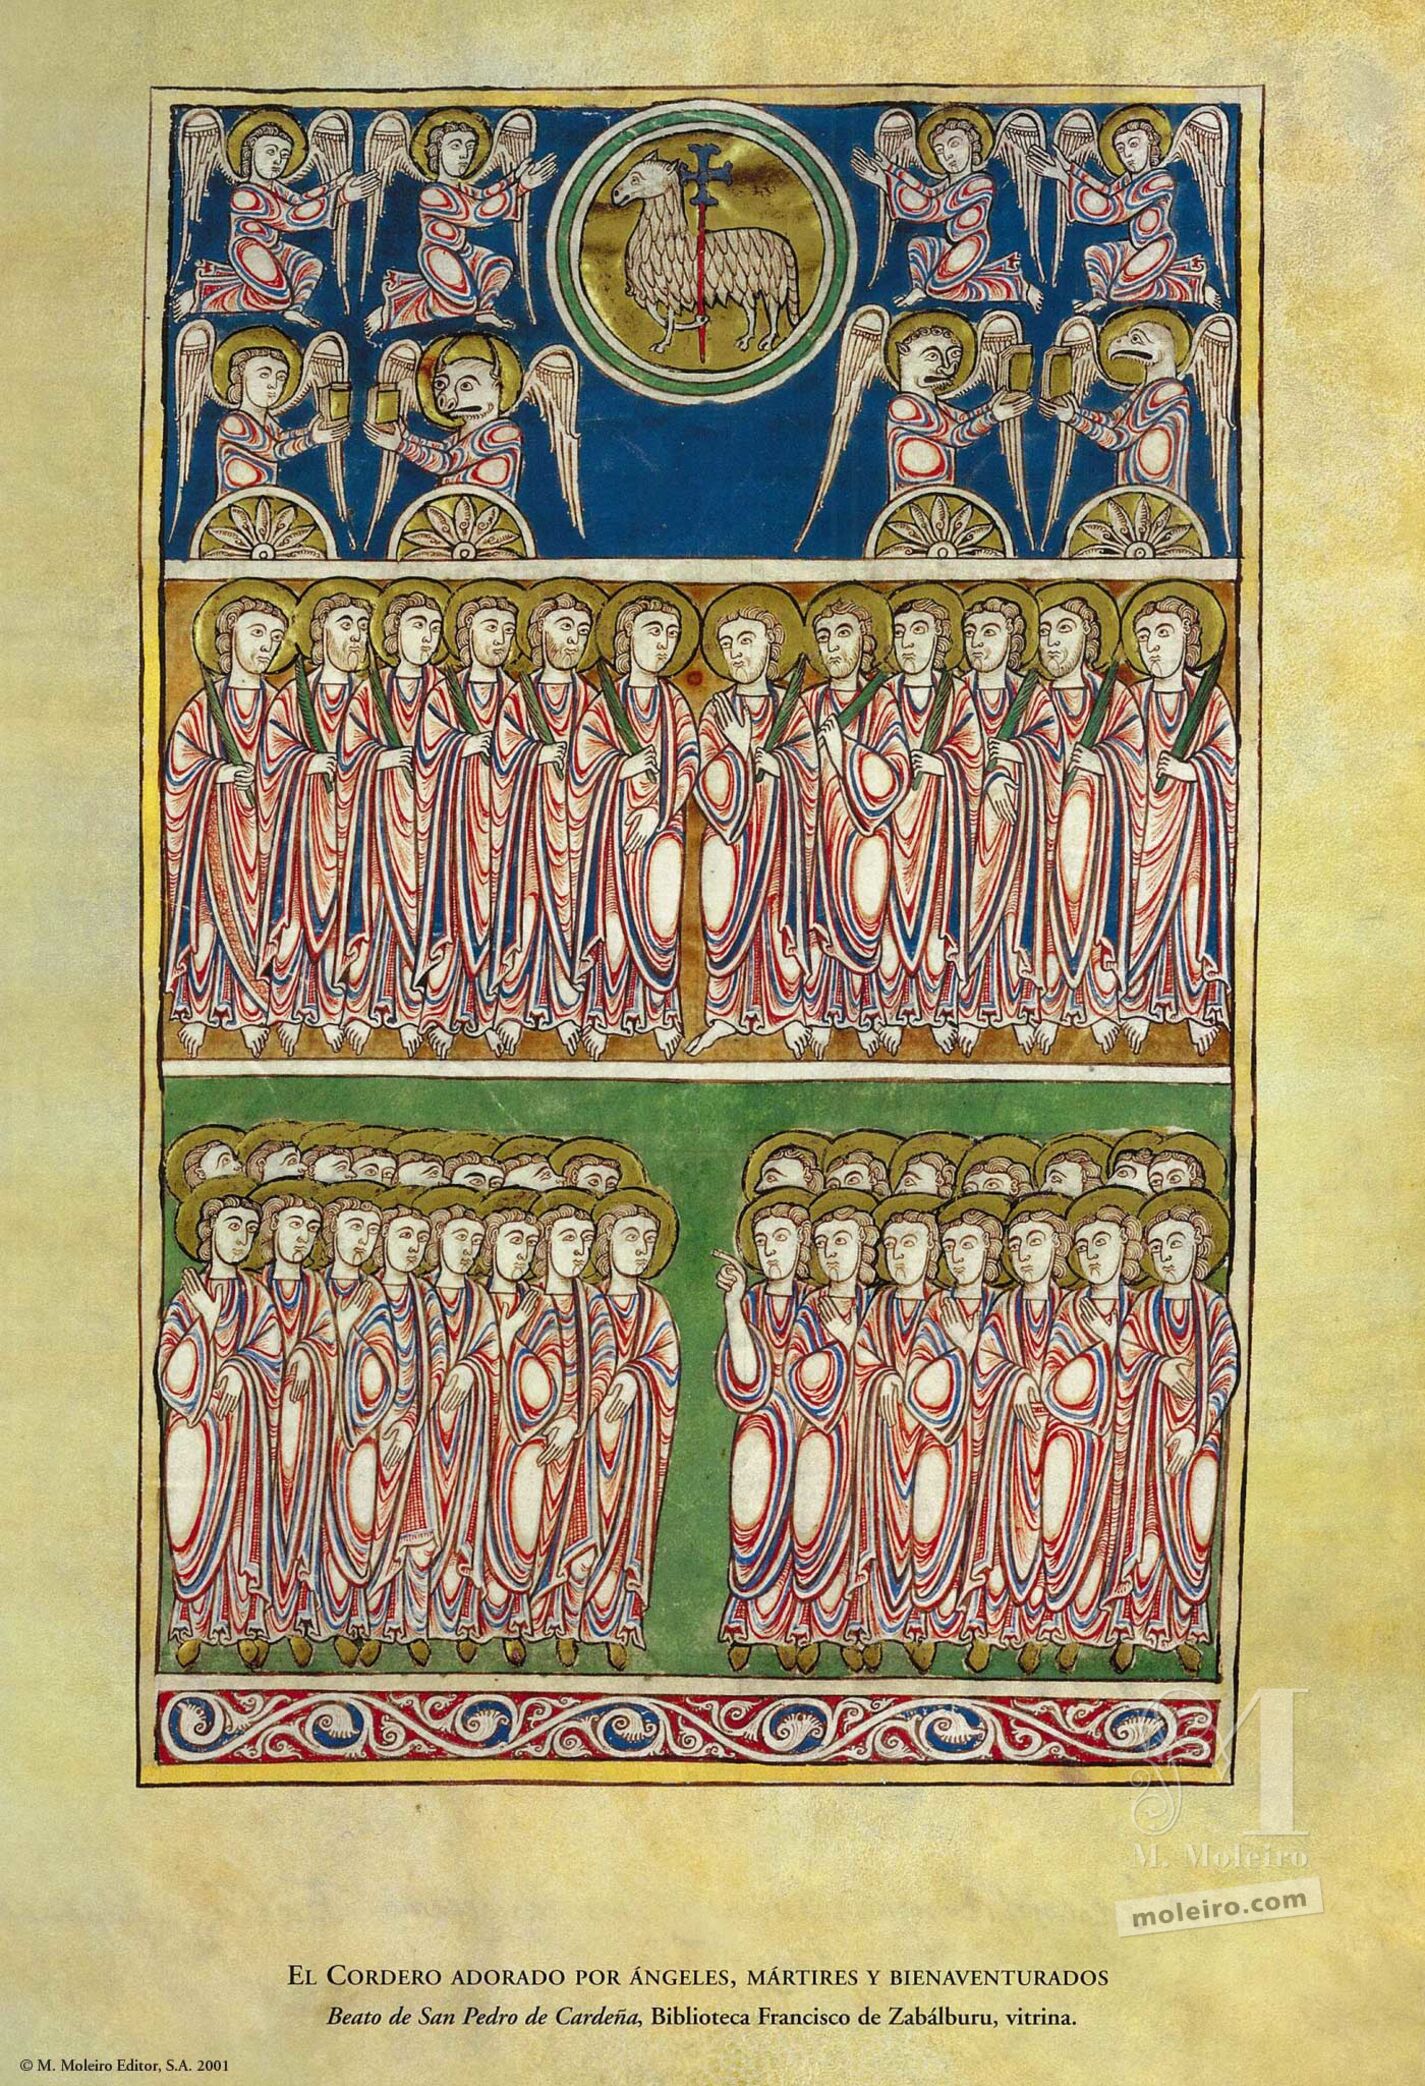 M. Moleiro
moleiro.com
El Cordero adorado por ángeles, mártires y bienaventurados
Beato de San Pedro de Cardeña, Biblioteca Francisco de Zabálburu, vitrina.
© M. Moleiro Editor, S.A. 2001